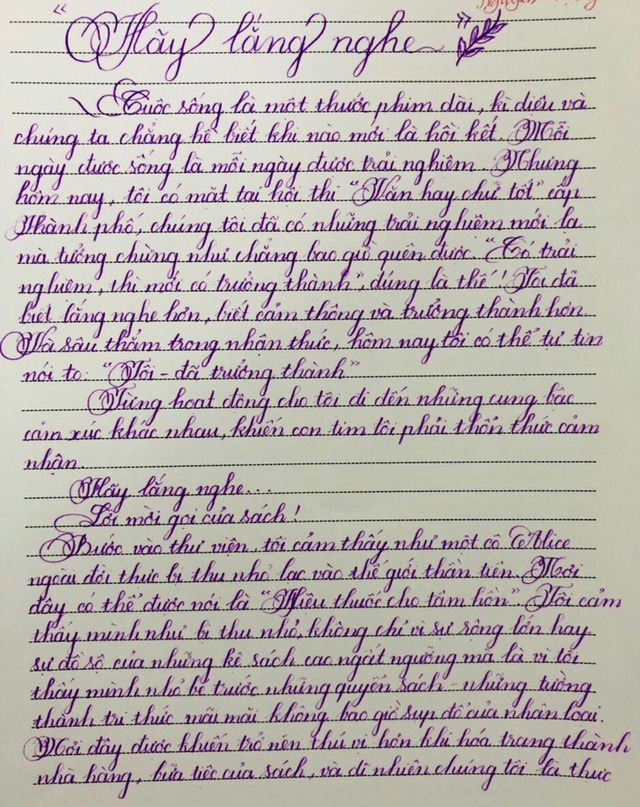 "Hãy lắng nghe"
Cuộc sống là một thước phim dài, kì diệu và
chúng ta chẳng hề biết khi nào mới là hồi kết. Mỗi
ngày được sống là mỗi ngày được trải nghiệm. Nhưng
hôm nay, tôi có mặt tại hội thi "Văn hay chữ tốt" cấp
Thành phố, chúng tôi đã có những trải nghiệm mới lạ
mà tưởng chừng như chẳng bao giờ quên được. "Có trải
nghiệm, thì mới có trưởng thành", đúng là thế! Tôi đã
biết lắng nghe hơn, biết cảm thông và trưởng thành hơn.
Và sâu thẳm trong nhận thức, hôm nay tôi có thể tự tin
nói to: "Tôi - đã trưởng thành"
Từng hoạt động cho tôi đi đến những cung bậc
cảm xúc khác nhau, khiến con tim tôi phải thổn thức cảm
nhận.
Hãy lắng nghe...
Lời mời gọi của sách!
Bước vào thư viện, tôi cảm thấy như một cô Alice
ngoài đời thực bị thu nhỏ lạc vào thế giới thần tiên. Nơi
đây có thể được nói là "Hiệu thuốc cho tâm hồn". Tôi cảm
thấy mình như bị thu nhỏ, không chỉ vì sự rộng lớn hay
sự đồ sộ của những kệ sách cao ngất ngưỡng mà là vì tôi
thấy mình nhỏ bé trước những quyển sách - những tường
thành tri thức mãi mãi không bao giờ sụp đổ của nhân loại.
Nơi đây được khiến trở nên thú vị hơn khi hóa trang thành
nhà hàng, bữa tiệc của sách, và dĩ nhiên chúng tôi là thực